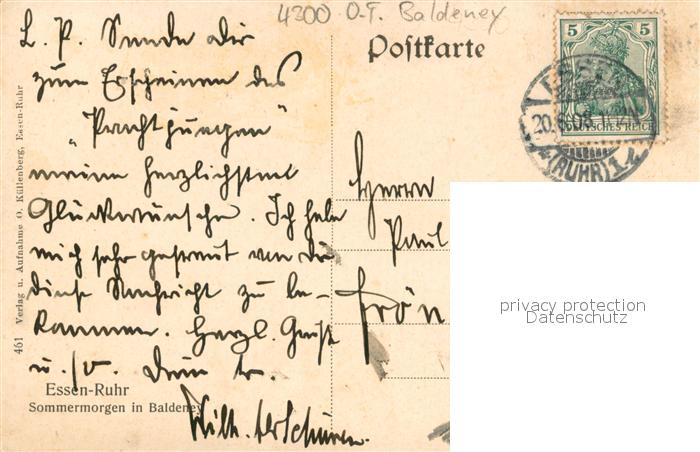 4300 O.T. Baldeney
Postkarte
5
DEUTSCHES REICH
ESSEN
20.6.08.
(RUHR) 1
L. P. Sende dir
zum Erscheinen des
"Prachtjungen"
meine herzlichsten
Glückwünsche. Ich habe
mich sehr gefreut von dir
diese Nachricht zu be-
kommen. Herzl. Gruß
u. s.
Dein tr.
Wilh. terSchüren.
Herrn
Paul
Frön
461 Verlag u. Aufnahme O. Küllenberg, Essen-Ruhr
Essen-Ruhr
Sommermorgen in Baldeney
privacy protection
Datenschutz